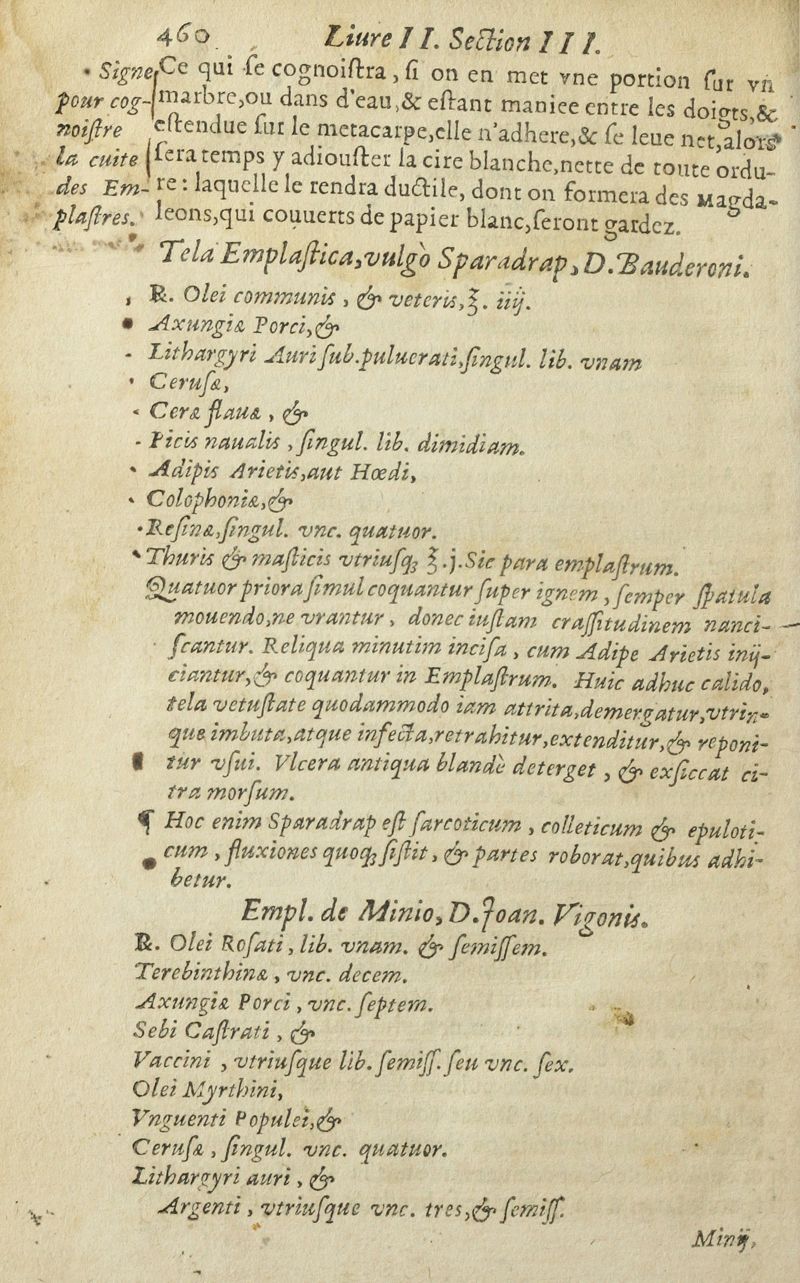 460. Liure II. Section III.
• Signe pour cognoistre la cuite des Emplastres.
Ce qui se cognoistra, si on en met vne portion sur vn
marbre,ou dans d'eau,& estant maniee entre les doigts,&
estendue sur le metacarpe,elle n'adhere,& se leue net,alors
sera temps y adiouster la cire blanche,nette de toute ordu-
re: laquelle le rendra ductile, dont on formera des Magda-
leons,qui couuerts de papier blanc,seront gardez.
Tela Emplastica,vulgò Sparadrap, D.Bauderoni.
℞. Olei communis, & veteris,℥. iiij.
Axungiæ Porci,&
Lithargyri Auri sub.puluerati,singul. lib. vnam
Cerusæ,
Ceræ flauæ, &
Picis naualis, singul. lib. dimidiam.
Adipis Arietis,aut Hœdi,
Colophoniæ,&
Resinæ,singul. vnc. quatuor.
Thuris & masticis vtriusq; ℥.j.Sic para emplastrum.
Quatuor priora simul coquantur super ignem, semper spatula
mouendo,ne vrantur, donec iustam crassitudinem nanci-
scantur. Reliqua minutim incisa, cum Adipe Arietis inij-
ciantur,& coquantur in Emplastrum. Huic adhuc calido,
tela vetustate quodammodo iam attrita,demergatur,vtrin-
que imbuta,atque infecta,retrahitur,extenditur,& reponi-
tur vsui. Vlcera antiqua blandè deterget, & exsiccat ci-
tra morsum.
¶ Hoc enim Sparadrap est sarcoticum, colleticum & epuloti-
cum, fluxiones quoq; sistit, & partes roborat,quibus adhi-
betur.
Empl. de Minio, D.Joan. Vigonis.
℞. Olei Rosati, lib. vnam. & semissem.
Terebinthinæ, vnc. decem.
Axungiæ Porci, vnc. septem.
Sebi Castrati, &
Vaccini, vtriusque lib. semiss. seu vnc. sex.
Olei Myrthini,
Vnguenti Populei,&
Cerusæ, singul. vnc. quatuor.
Lithargyri auri, &
Argenti, vtriusque vnc. tres,& semiss.
Minij,